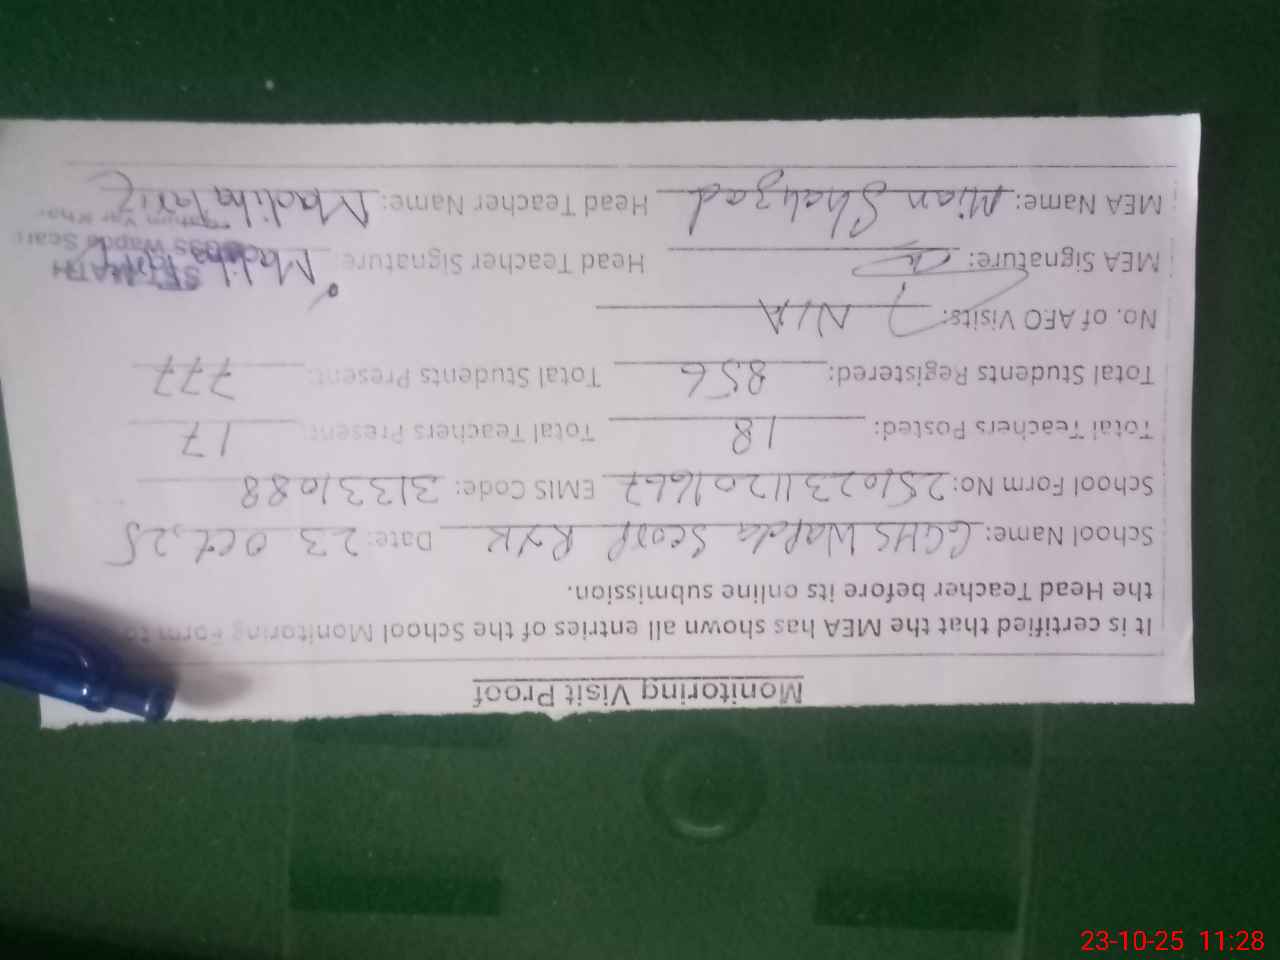 Monitoring Visit Proof
It is certified that the MEA has shown all entries of the School Monitoring Form to
the Head Teacher before its online submission.
School Name: GGHS Wapda Scarp RYK Date: 23 Oct, 25
School Form No: 25102311201667 EMIS Code: 31331088
Total Teachers Posted: 18 Total Teachers Present: 17
Total Students Registered: 856 Total Students Present: 777
No. of AEO Visits: N/A
MEA Signature: Head Teacher Signature:
SST MATH
MEA Name: Mian Shahzad Head Teacher Name: Madiha
23-10-25 11:28